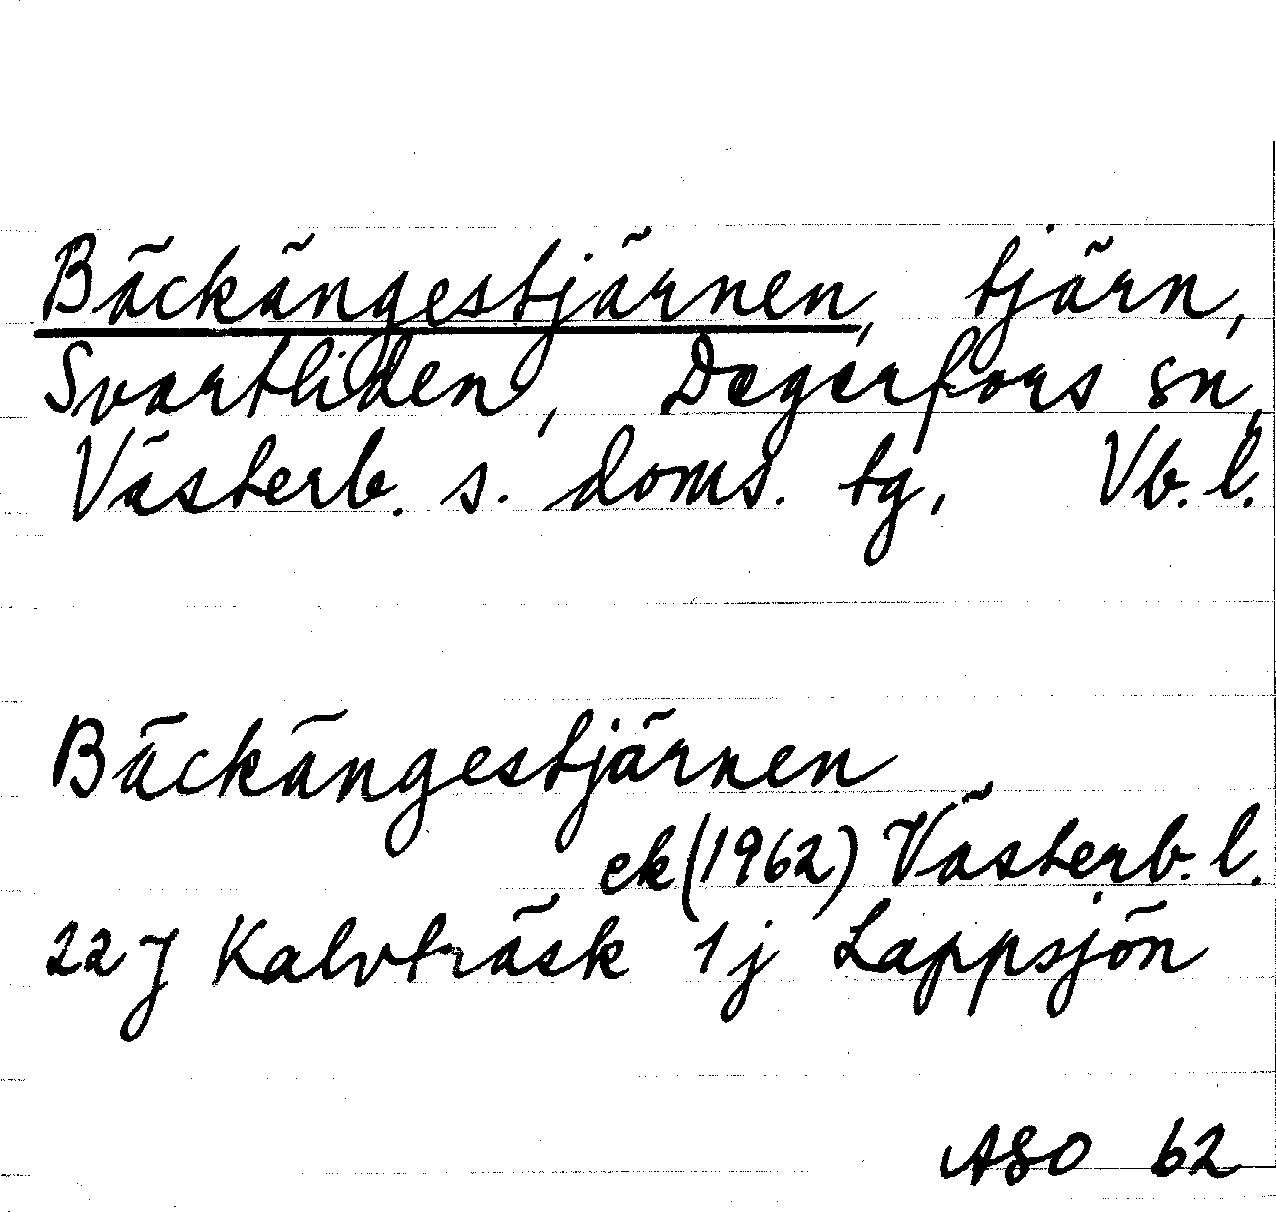 Bäckängestjärnen, tjärn,
Svartliden, Degerfors sn,
Västerb. s. doms. tg, Vb. l.
Bäckängestjärnen
ek (1962) Västerb. l.
22 J Kalvträsk 1 j Lappsjön
ASO 62